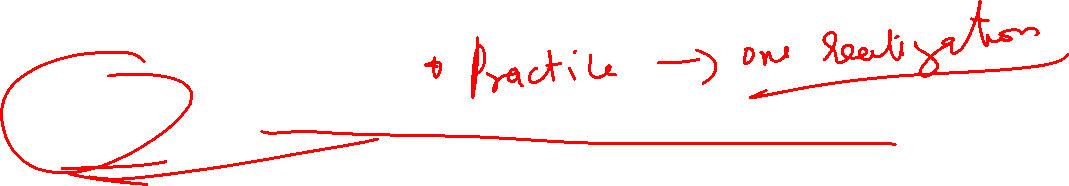 • Practice → one realization